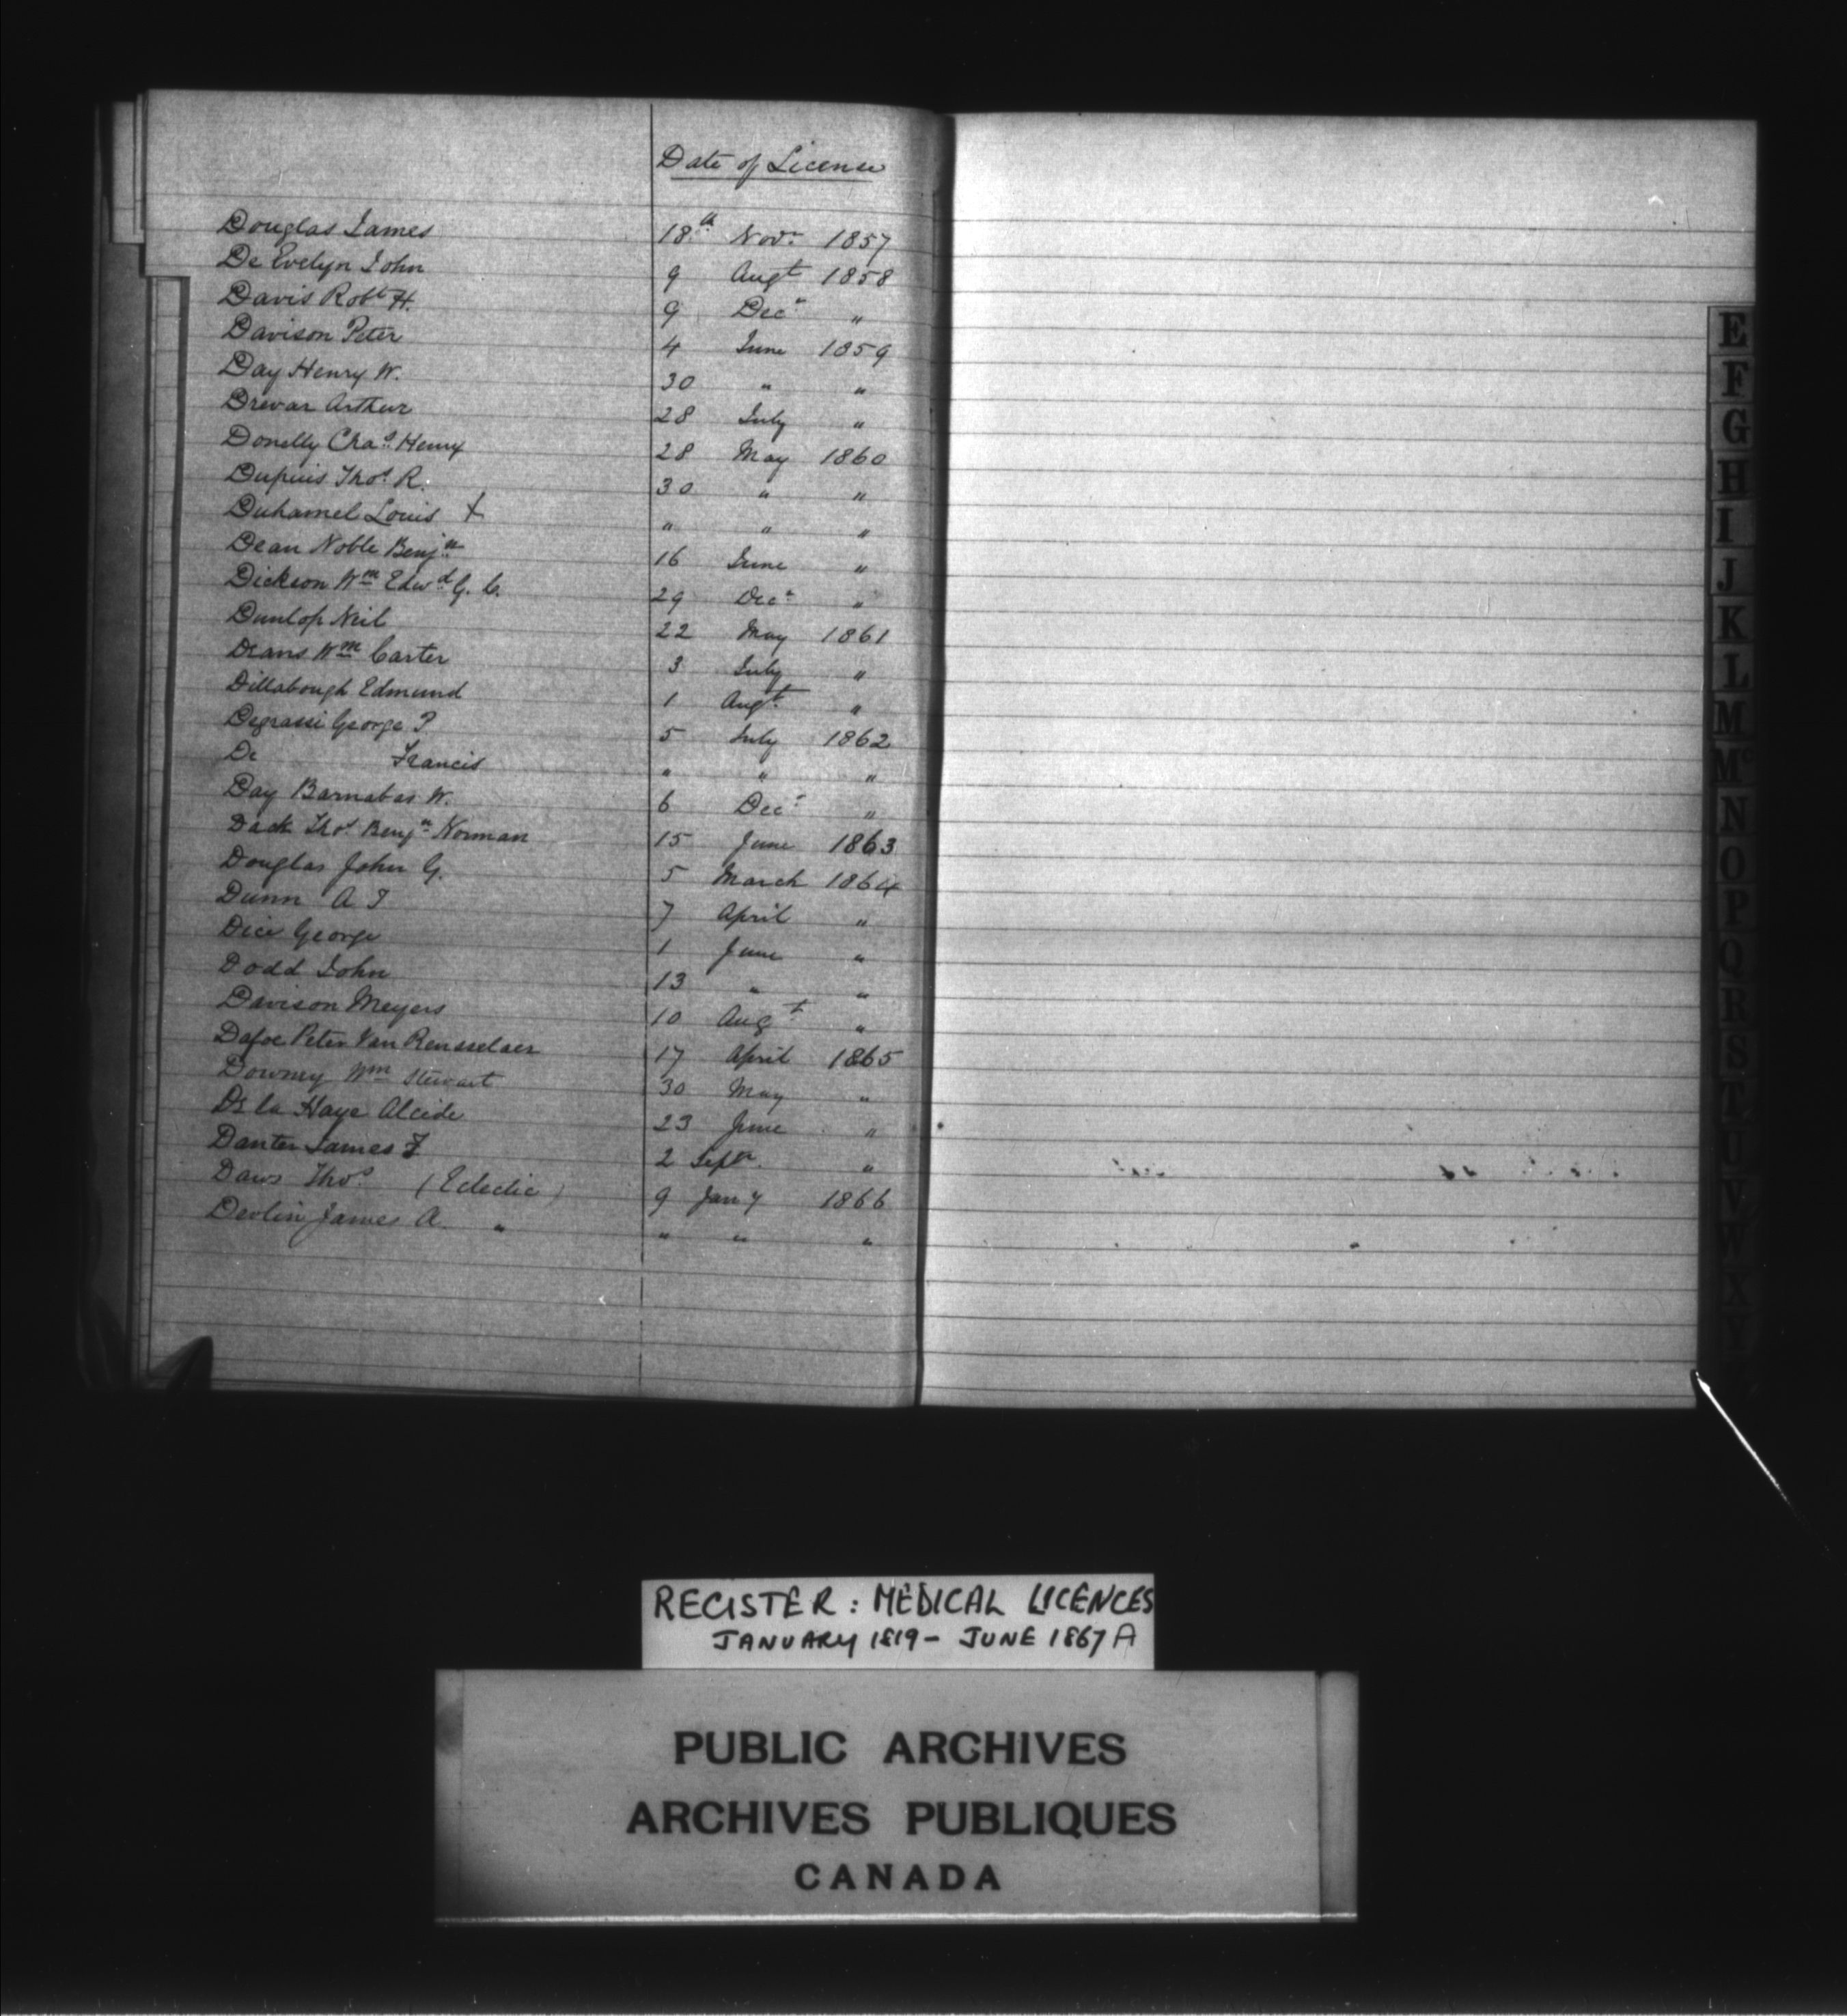 Date of License
Douglas James 18th Novr 1857
De Evelyn John 9 Augt 1858
Davis Robt H. 9 Decr "
Davison Peter 4 June 1859
Day Henry W. 30 " "
Drewar Arthur 28 July "
Donelly Chas Henry 28 May 1860
Dupuis Thos R. 30 " "
Duhamel Louis X " " "
Dean Noble Benjn 16 June "
Dickson Wm Edwd G. C. 29 Decr "
Dunlop Neil 22 May 1861
Deans Wm Carter 3 July "
Dillabough Edmund 1 Augt "
Degrassi George P 5 July 1862
De Francis " " "
Day Barnabas W. 6 Decr "
Dack Thos Benjn Norman 15 June 1863
Douglas John G. 5 March 1864
Dunn A J 7 April "
Dice George 1 June "
Dodd John 13 " "
Davison Meyers 10 Augt "
Dafoe Peter Van Rensselaer 17 April 1865
Downey Wm Stewart 30 May "
De la Haye Alcide 23 June "
Danter James F 2 Septr. "
Daws Thos (Eclectic) 9 Jany 1866
Devlin James A. " " " "
E
F
G
H
I
J
K
L
M
Mc
N
O
P
Q
R
S
T
U
V
W
X
Y
REGISTER: MEDICAL LICENCES
JANUARY 1819 - JUNE 1867 A
PUBLIC ARCHIVES
ARCHIVES PUBLIQUES
CANADA